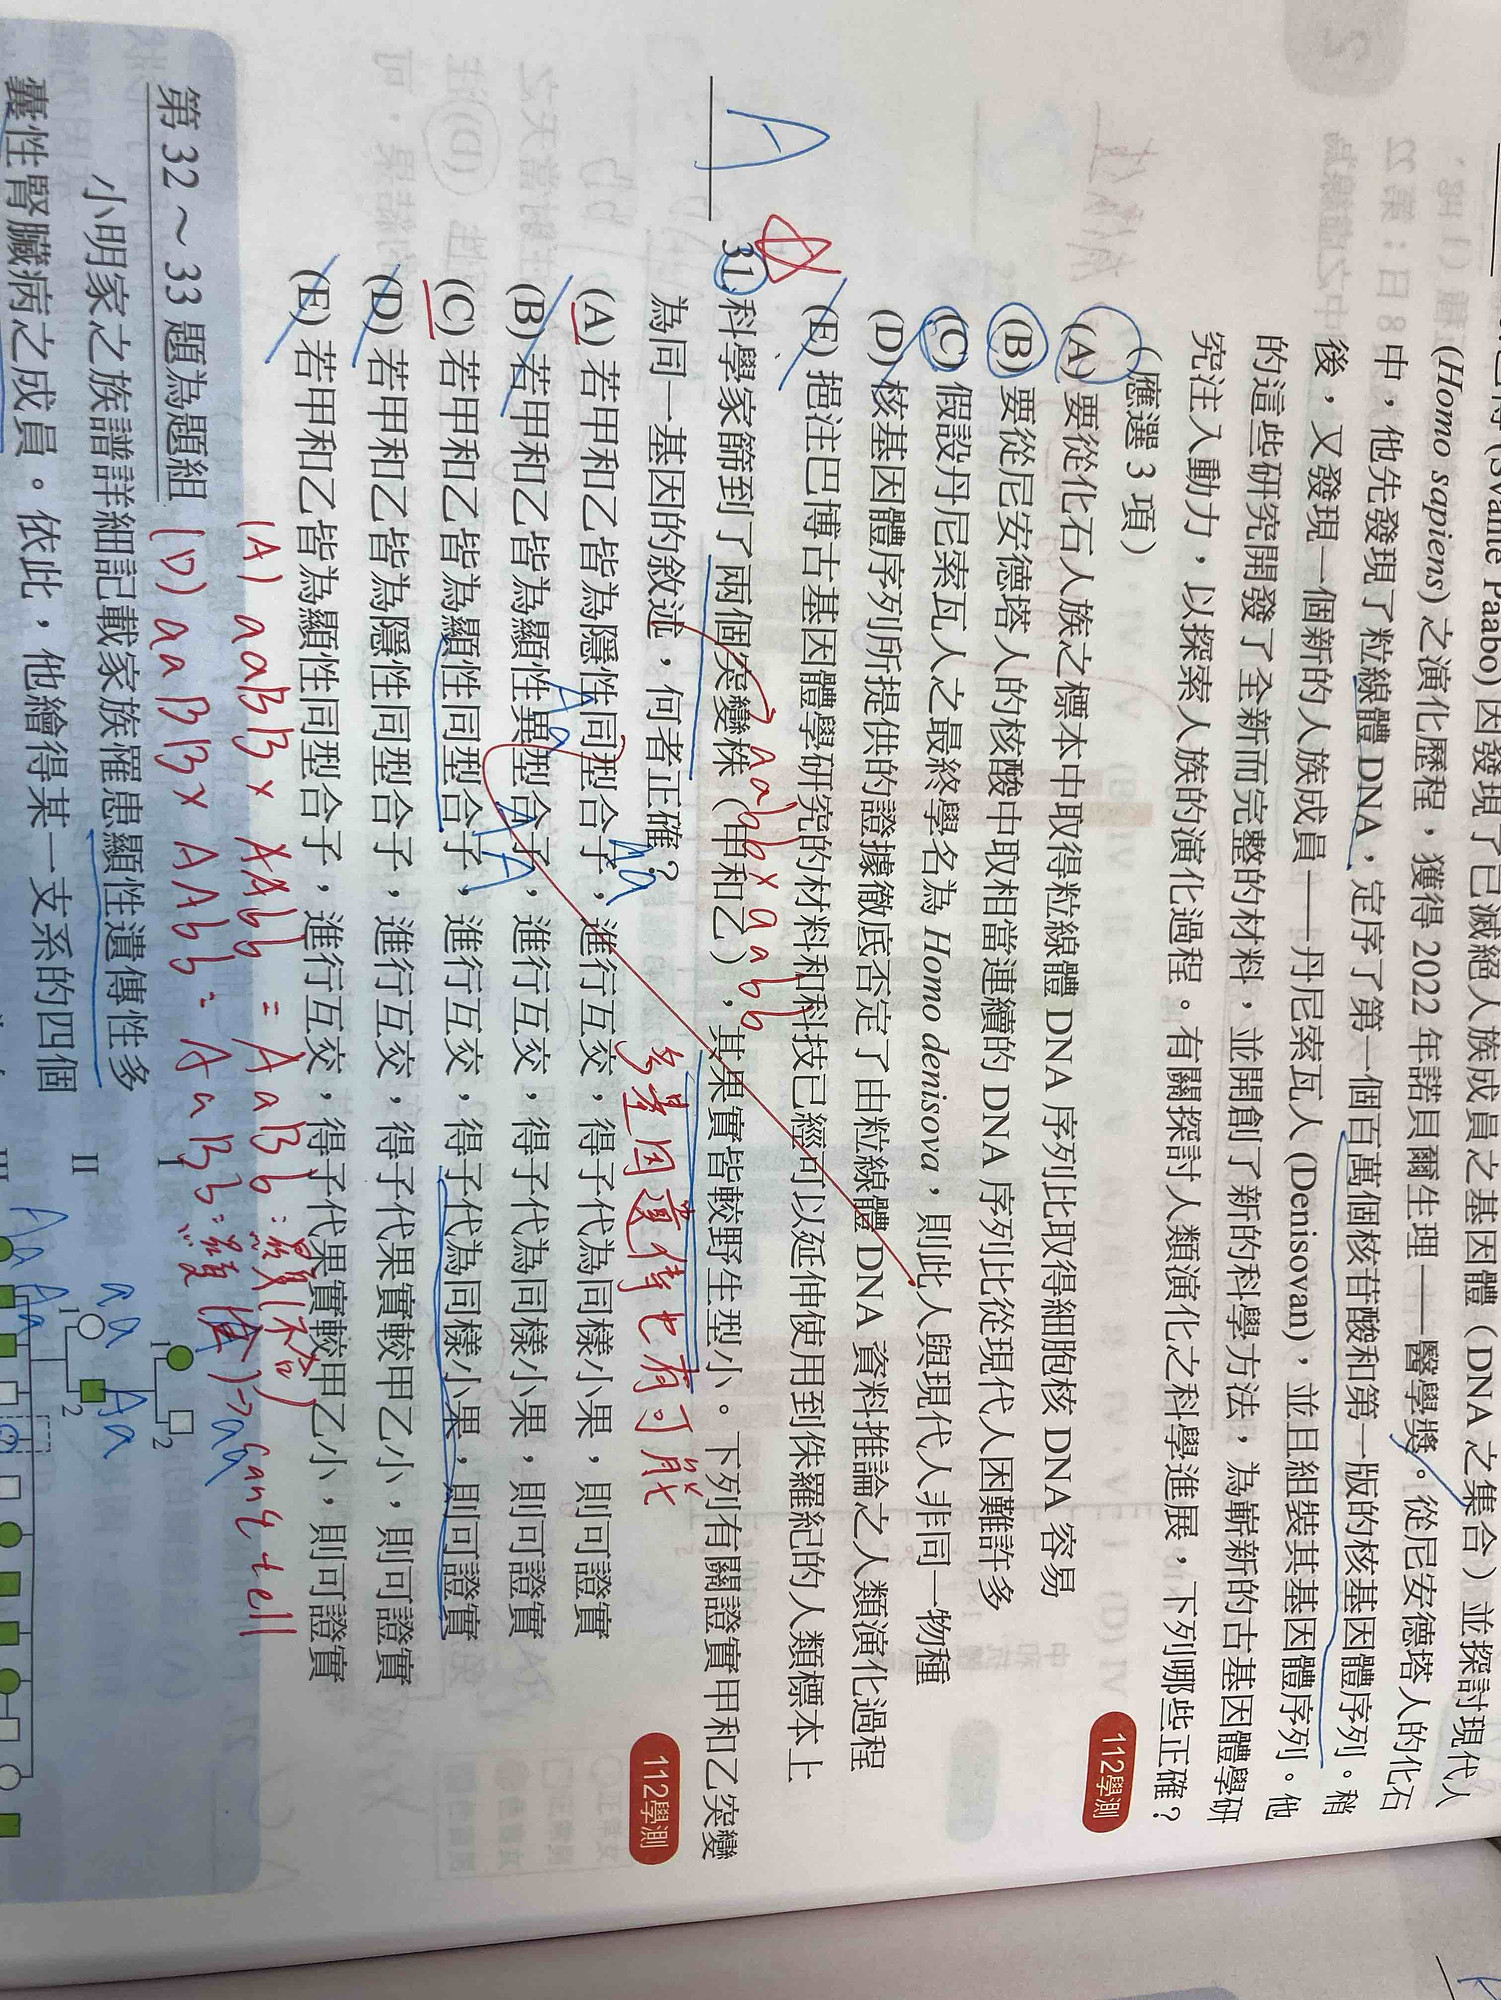 (Svante Pääbo) 因發現了已滅絕人族成員之基因體(DNA 之集合)並探討現代人
(Homo sapiens) 之演化歷程,獲得 2022 年諾貝爾生理——醫學獎。從尼安德塔人的化石
中,他先發現了粒線體 DNA,定序了第一個百萬個核苷酸和第一版的核基因體序列。稍
後,又發現一個新的人族成員——丹尼索瓦人 (Denisovan),並且組裝其基因體序列。他
的這些研究開發了全新而完整的材料,並開創了新的科學方法,為嶄新的古基因體學研
究注入動力,以探索人族的演化過程。有關探討人類演化之科學進展,下列哪些正確?
(應選 3 項)
112學測
(A) 要從化石人族之標本中取得粒線體 DNA 序列比取得細胞核 DNA 容易
(B) 要從尼安德塔人的核酸中取相當連續的 DNA 序列比從現代人困難許多
(C) 假設丹尼索瓦人之最終學名為 Homo denisova,則此人與現代人非同一物種
(D) 核基因體序列所提供的證據徹底否定了由粒線體 DNA 資料推論之人類演化過程
(E) 挹注巴博古基因體學研究的材料和科技已經可以延伸使用到侏羅紀的人類標本上
aabb x aabb
A
31. 科學家篩到了兩個突變株(甲和乙),其果實皆較野生型小。下列有關證實甲和乙突變
為同一基因的敘述,何者正確?
112學測
多基因遺傳也有可能
Aa
(A) 若甲和乙皆為隱性同型合子,進行互交,得子代為同樣小果,則可證實
Aa
(B) 若甲和乙皆為顯性異型合子,進行互交,得子代為同樣小果,則可證實
AA
(C) 若甲和乙皆為顯性同型合子,進行互交,得子代為同樣小果,則可證實
(D) 若甲和乙皆為隱性同型合子,進行互交,得子代果實較甲乙小,則可證實
(E) 若甲和乙皆為顯性同型合子,進行互交,得子代果實較甲乙小,則可證實
(A) aaBB x AAbb = AaBb
(D) aaBB x AAbb = AaBb
can't tell
第 32 ~ 33 題為題組
小明家之族譜詳細記載家族罹患顯性遺傳性多
囊性腎臟病之成員。依此,他繪得某一支系的四個
I
1
2
II
1
2
aa
Aa
aa
Aa
Aa
III